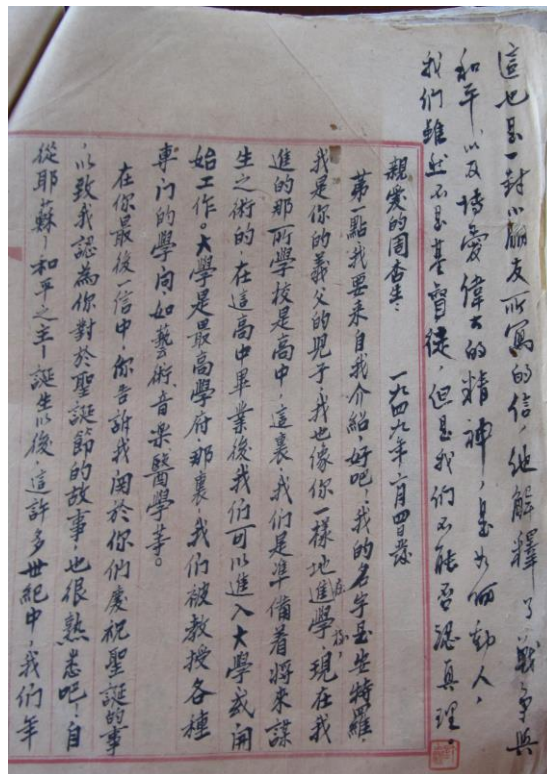 這也是一封小朋友所寫的信，他解釋了戰爭與
和平，以及博愛偉大的精神，是如何動人，
我們雖然不是基督徒，但是我們不能否認真理。
親愛的周杏生： 一九四九年一月四日發
第一點我要来自我介紹，好吧！我的名字是安特羅，
我是你的義父的児子，我也像你一樣地進學，現在我
在 孩，
進的那所學校是高中，這裏，我们是準備着将来謀
生之術的，在這高中畢業後我们可以進入大學或開
始工作。大學是最高學府，那裏，我们被教授各種
專门的學问如藝術、音楽、醫學等。
在你最後一信中，你告訴我関於你们慶祝聖誕的事
，以致我認為你對於聖誕節的故事，也很熟悉吧！自
從耶蘇—和平之主—誕生以後，這許多世紀中，我们年